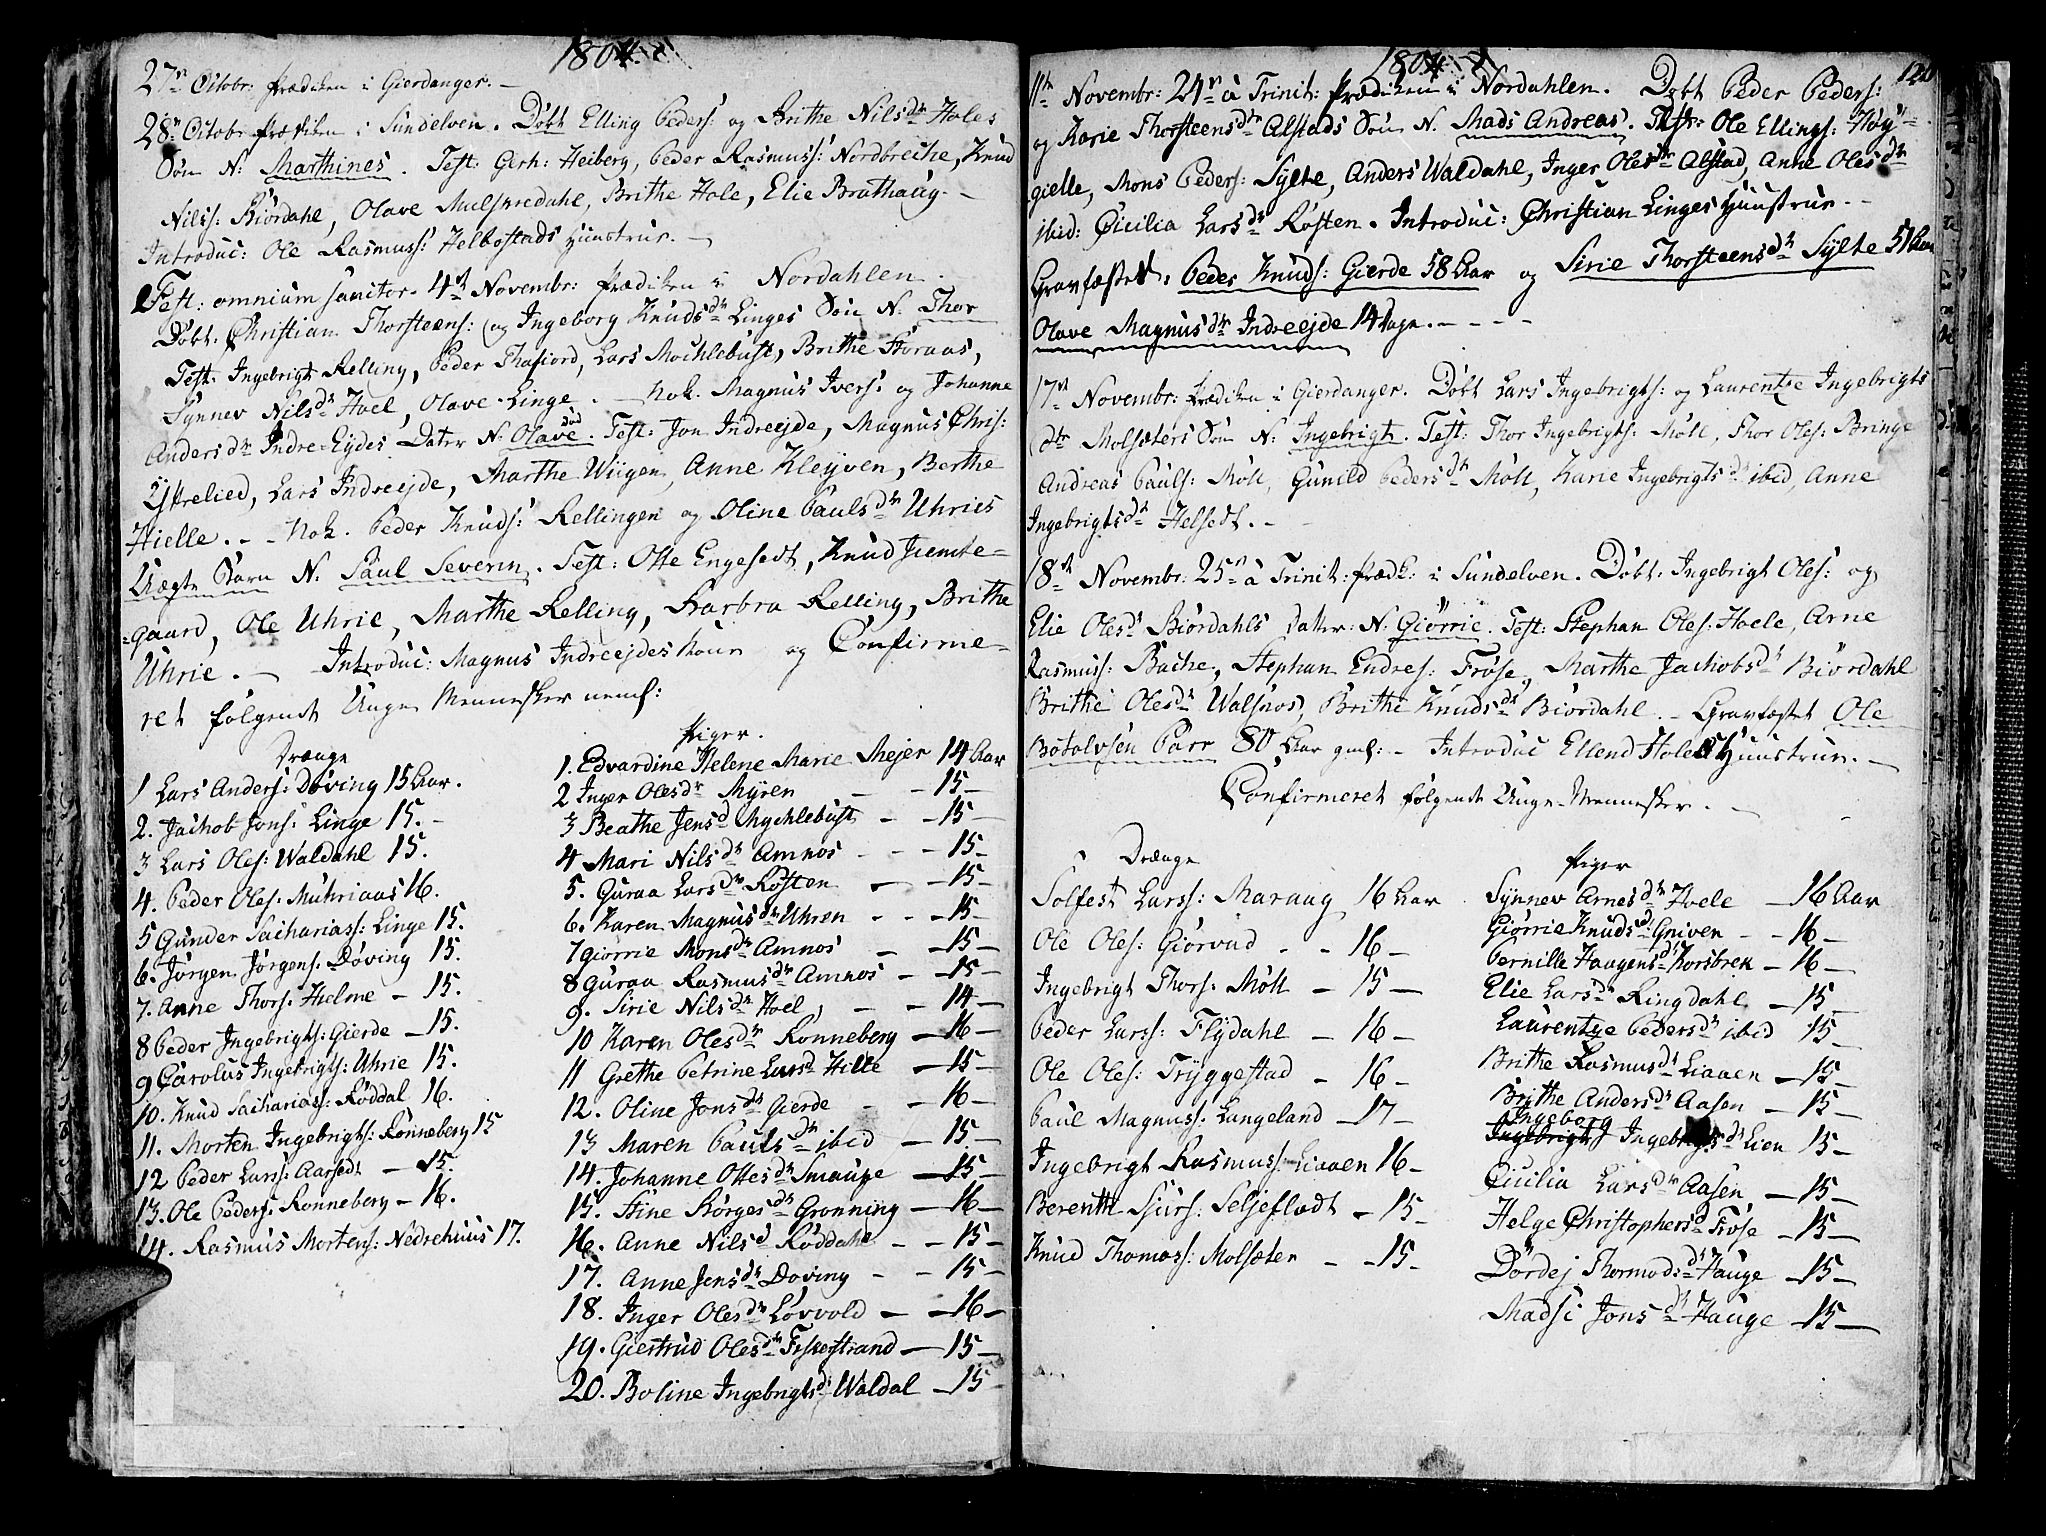 1804.
27de Octobr: Prædiken i Gierdanger. -
28de Octobr Prædiken i Sundelven. Döbt Elling Peders: og Brithe Nilsdtr Holes
Sön N: Marthines. Test: Gerh: Heiberg, Peder Rasmuss: Nordbreche, Knud
Nilss: Biördahl, Olave Mulskredahl, Brithe Hole, Elie Brathaug. -
Introduc: Ole Rasmuss: Helbostads Huustrue. -
Fest: omnium sanctor. 4de Novembr: Prædiken i Nordahlen.
Döbt. Christian Thorsteens: og Ingeborg Knudsdtr Linges Sön N. Thor
Test. Ingebrigt Relling, Peder Thafiord, Lars Mochlebust, Brithe Horaas,
Synnev Nilsdtr Hoel, Olave Linge. - Nok. Magnus Ivers: og Johanne
Andersdtr Indre-Eydes Dater N. Olave. Test: Jon Indreejde, Magnus Chris:
död
Ystrelied, Lars Indreejde, Marthe Wiigen, Anne Kleyven, Berthe
Hielle. - - Nok. Peder Knuds: Rellingen og Oline Paulsdtr Uhries
Uægte Barn N. Paul Severin. Test: Otte Engesedt, Knud Jemte=
=gaard, Ole Uhrie, Marthe Relling, Barbra Relling, Brithe
Uhrie. - Introduc: Magnus Indreejdes Kone og Confirme=
ret følgende Unge Mennesker neml:
Drænge
1 Lars Anders: Döving 15 Aar.
2. Jachob Jons: Linge 15. -
3 Lars Oles: Waldahl 15.
4. Peder Oles. Muhriaas 16.
5 Gunder Sachariass: Linge 15.
6. Jörgen Jörgens. Döving 15.
7. Anne Thors. Hielme - 15.
8 Peder Ingebrigts: Gierde - 15.
9 Carolus Ingebrigts: Uhrie 15.
10. Knud Sachariass: Röddal 16.
11. Morten Ingebrigts: Rönneberg 15
12 Peder Larss: Aarsedt - 15.
13. Ole Peders. Ronneberg - 16.
14. Rasmus Mortens: Nedrehuus 17.
Piger.
1. Edvardine Helene Marie Mejer 14 Aar
2 Inger Olesdtr Myren - - 15 -
3 Beathe Jensd Mychlebust - - 15 -
4 Mari Nilsdtr Amnos - - - 15 -
5. Guraa Larsdtr Rösten - - 15 -
6. Karen Magnusdtr Uhren - - - 15 -
7 Giörrie Monsdtr Amnos - - 15 -
8 Guraa Rasmusdtr Amnos - - 15 -
9. Sirie Nilsdtr Hoel, - - 14 -
10 Karen Olesdtr Ronneberg - 16 -
11 Grethe Petrine Larsd Hilte - 15 -
12. Oline Jonsdtr Gierde - - 16 -
13 Maren Paulsdtr ibid - 15 -
14. Johanne Ottesdtr Smauge - 15 -
15. Stine Börgesdtr Gronning - 16 -
16. Anne Nilsd Röddahl - - 15 -
17. Anne Jensdtr Doving - - 15 -
18. Inger Olesdtr Lövvold - - 16 -
19. Giertrud Olesdtr Fiskerstrand - 15 -
20. Boline Ingebrigtsdtr Waldal - 15 -
1804.
11te Novembr: 24de à Trinit: Prædiken i Nordahlen. Döbt Peder Peders:
og Karie Thorsteensdtr Alstads Sön N. Mads Andreas. Test: Ole Ellings: Höy=
gielle, Mons Peders: Sylte, Anders Waldahl, Inger Olesdtr Alstad, Anne Olesdtr
ibid: Cicilia Larsdtr Rösten. Introduc: Christian Linges Huustrue. -
Gravfæstet: Peder Knuds: Gierde 58 Aar og Sirie Thorsteensdtr Sylte 51 Aar
Olave Magnusdtr Indreejde 14 Dage. - - - -
17de Novembr: Prædiken i Gierdanger. Döbt Lars Ingebrigts: og Laurentze Ingebrigts
dtr Molsæters Sön N: Ingebrigt. Test: Thor Ingebrigts: Möll, Thor Oles: Bringe
Andreas Pauls: Möll, Gunild Pedersdtr Möll, Karie Ingebrigtsdtr ibid, Anne
Ingebrigtsdtr Helsedt. -
18de Novembr: 25de à Trinit: Præd: i Sundelven. Döbt: Ingebrigt Oles: og
Elie Olesdtr Biördahls Datter: N. Giörrie. Test: Stephan Oles: Hoele, Arne
Rasmuss: Bache, Stephan Endres: Fröse, Marthe Jachobsdtr Biördahl
Brithe Olesdtr Walsnos, Brithe Knudsdtr Biördahl. - Gravfæstet Ole
Botolvsen Parr 80 Aar gml: - Introduc Ellend Holes Huustrue. -
Confirmeret følgende Unge-Mennesker. -
Drænge
Solfest Larss: Maraag 16 Aar
Ole Oles: Giörvad - - 16 -
Ingebrigt Thors: Möll - 15 -
Peder Larss: Flydahl - 16 -
Ole Oles: Tryggestad - 16 -
Paul Magnuss: Langeland - 17 -
Ingebrigt Rasmuss: Liaaen 16 -
Berent Sjurs: Seljeflodt - 15 -
Knud Thomass: Molsæter - - 15 -
Piger
Synnev Arnesdtr Hoele - 16 Aar
Giörrie Knudsd: Gniven - - 16 -
Pernille Haagensdtr Korsbrek - 16 -
Elie Larsdtr Ringdahl - 15 -
Laurentze Pedersdtr ibid 15 -
Brithe Rasmusdtr Liaaen - 15 -
Brithe Andersdtr Aasen - 15 -
Ingeborg
Ingebrigt Ingebrigtsdtr Lien 15 -
Cicilia Larsdtr Aasen - 15 -
Helge Christophersd Fröse - 15 -
Dördej Thormodsdtr Hauge - 15 -
Madsi Jonsdtr Hauge - 15 -